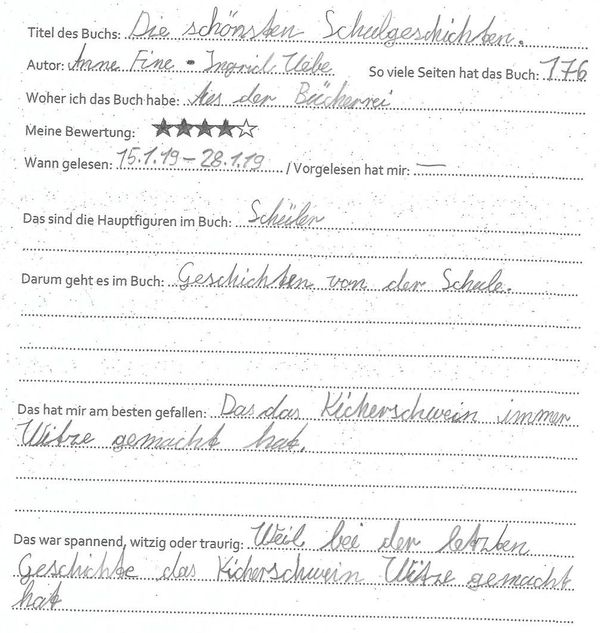 Titel des Buchs: Die schönsten Schulgeschichten.
Autor: Anne Fine - Ingrid Uebe So viele Seiten hat das Buch: 176
Woher ich das Buch habe: Aus der Bücherrei
Meine Bewertung: ★★★★☆
Wann gelesen: 15.1.19 – 28.1.19 / Vorgelesen hat mir: —
Das sind die Hauptfiguren im Buch: Schüler
Darum geht es im Buch: Geschichten von der Schule.
Das hat mir am besten gefallen: Das das Kicherschwein immer
Witze gemacht hat.
Das war spannend, witzig oder traurig: Weil bei der letzten
Geschichte das Kicherschwein Witze gemacht
hat